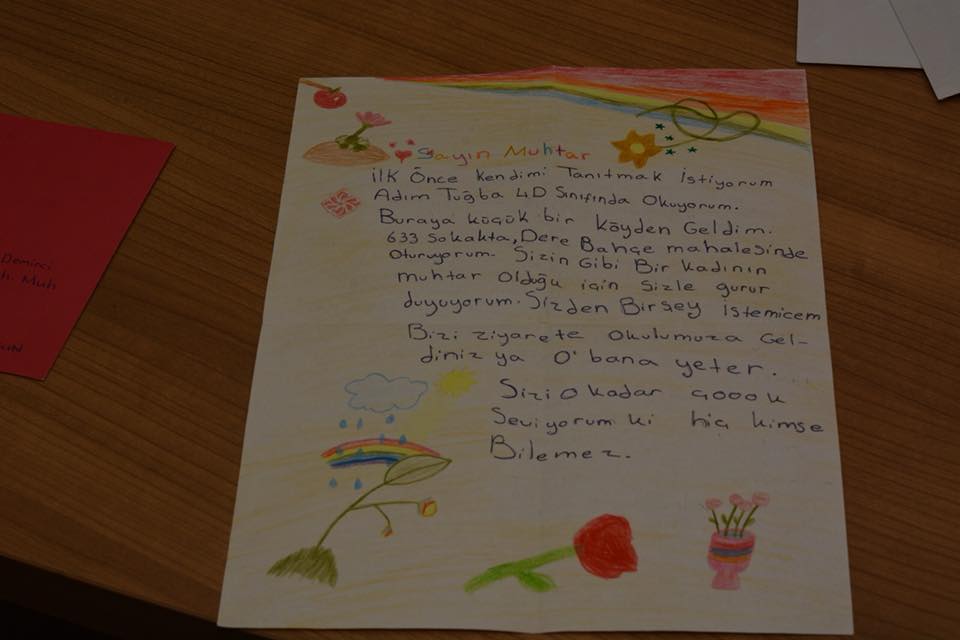 Sayın Muhtar
İLK Önce Kendimi Tanıtmak İstiyorum
Adım Tuğba 4D Sınıfında Okuyorum.
Buraya küçük bir Köyden Geldim.
633 Sokakta, Dere Bahçe mahalesinde
Oturuyorum. Sizin Gibi Bir Kadının
muhtar Olduğu için Sizle gurur
duyuyorum. Sizden Birşey istemicem
Bizi ziyarete Okulumuza Gel-
diniz ya O' bana yeter.
Sizi O kadar çoook
Seviyorum ki hiç kimse
Bilemez.
Demirci
h. Muh